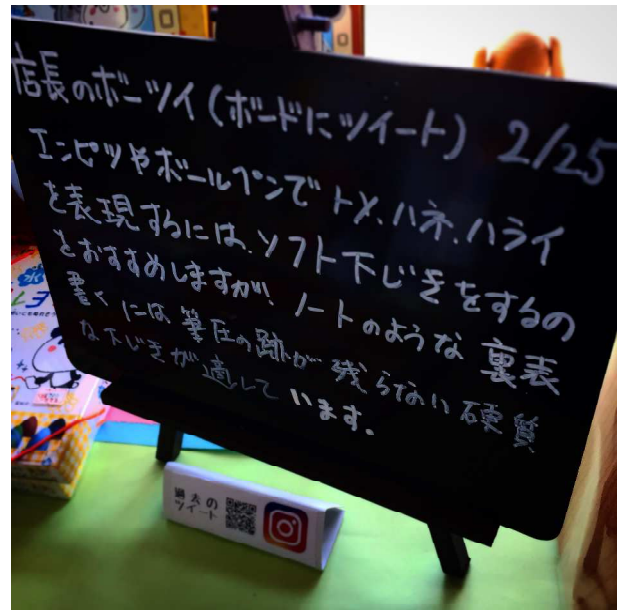 店長のボーツイ(ボードにツイート) 2/25
エンピツやボールペンでトメ、ハネ、ハライ
を表現するには、ソフト下じきをするの
をおすすめしますが、ノートのような裏表
書くには筆圧の跡が残らない硬質
な下じきが適しています。
過去の
ツイート